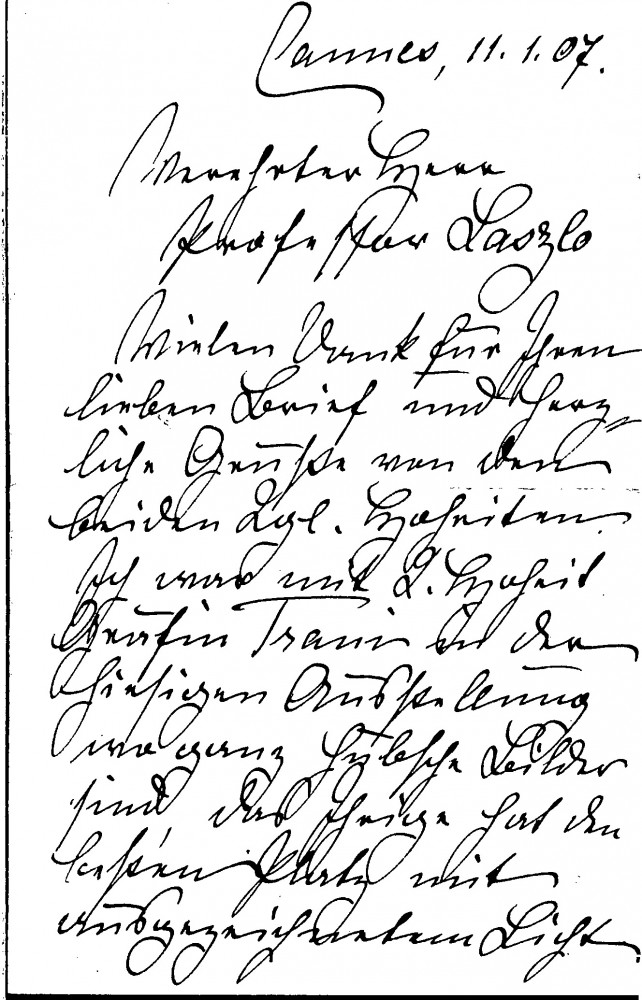 Cannes, 11. 1. 07.
Verehrter Herr
Professor Laszlo
Vielen Dank für Ihren
lieben Brief und herz-
liche Grüße von den
beiden Kgl. Hoheiten.
Ich war mit K. Hoheit
Gräfin Trani in der
hiesigen Ausstellung
wo ganz hübsche Bilder
sind das Ihrige hat den
besten Platz mit
ausgezeichnetem Licht.